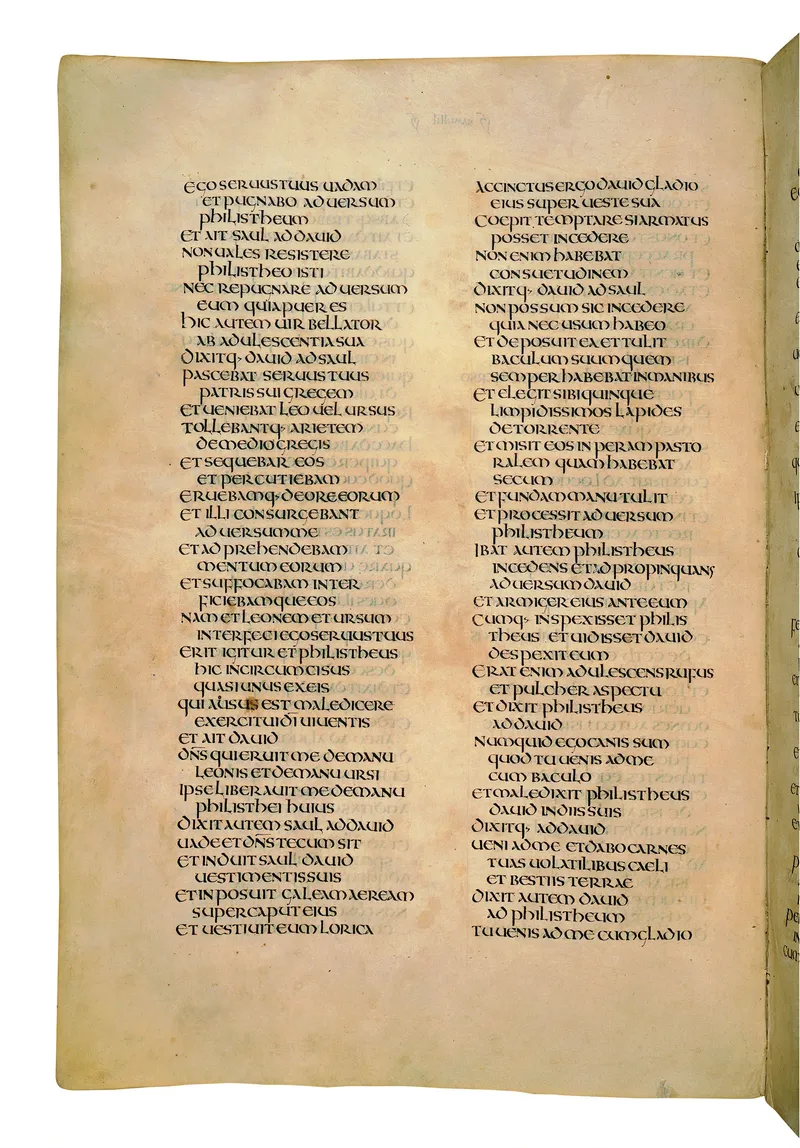 EGO SERUUS TUUS UADAM
ET PUGNABO ADUERSUM
PHILISTHEUM
ET AIT SAUL AD DAUID
NON UALES RESISTERE
PHILISTHEO ISTI
NEC REPUGNARE ADUERSUM
EUM QUIA PUER ES
HIC AUTEM UIR BELLATOR
AB ADULESCENTIA SUA
DIXITQ· DAUID AD SAUL
PASCEBAT SERUUS TUUS
PATRIS SUI GREGEM
ET UENIEBAT LEO UEL URSUS
TOLLEBANTQ· ARIETEM
DE MEDIO GREGIS
ET SEQUEBAR EOS
ET PERCUTIEBAM
ERUEBAMQ· DE ORE EORUM
ET ILLI CONSURGEBANT
ADUERSUM ME
ET ADPREHENDEBAM
MENTUM EORUM
ET SUFFOCABAM INTER
FICIEBAMQUE EOS
NAM ET LEONEM ET URSUM
INTERFECI EGO SERUUS TUUS
ERIT IGITUR ET PHILISTHEUS
HIC INCIRCUMCISUS
QUASI UNUS EX EIS
QUI AUSUS EST MALEDICERE
EXERCITUI DĪ UIUENTIS
ET AIT DAUID
DN̄S QUI ERUIT ME DE MANU
LEONIS ET DE MANU URSI
IPSE LIBERAUIT ME DE MANU
PHILISTHEI HUIUS
DIXIT AUTEM SAUL AD DAUID
UADE ET DN̄S TECUM SIT
ET INDUIT SAUL DAUID
UESTIMENTIS SUIS
ET INPOSUIT GALEAM AEREAM
SUPER CAPUT EIUS
ET UESTIUIT EUM LORICA
ACCINCTUS ERGO DAUID GLADIO
EIUS SUPER UESTE SUA
COEPIT TEMPTARE SI ARMATUS
POSSET INCEDERE
NON ENIM HABEBAT
CONSUETUDINEM
DIXITQ· DAUID AD SAUL
NON POSSUM SIC INCEDERE
QUIA NEC USUM HABEO
ET DEPOSUIT EA ET TULIT
BACULUM SUUM QUEM
SEMPER HABEBAT IN MANIBUS
ET ELEGIT SIBI QUINQUE
LIMPIDISSIMOS LAPIDES
DE TORRENTE
ET MISIT EOS IN PERAM PASTO
RALEM QUAM HABEBAT
SECUM
ET FUNDAM MANU TULIT
ET PROCESSIT ADUERSUM
PHILISTHEUM
IBAT AUTEM PHILISTHEUS
INCEDENS ET ADPROPINQUANS
ADUERSUM DAUID
ET ARMIGER EIUS ANTE EUM
CUMQ· INSPEXISSET PHILIS
THEUS ET UIDISSET DAUID
DESPEXIT EUM
ERAT ENIM ADULESCENS RUFUS
ET PULCHER ASPECTU
ET DIXIT PHILISTHEUS
AD DAUID
NUMQUID EGO CANIS SUM
QUOD TU UENIS AD ME
CUM BACULO
ET MALEDIXIT PHILISTHEUS
DAUID IN DIIS SUIS
DIXITQ· AD DAUID
UENI AD ME ET DABO CARNES
TUAS UOLATILIBUS CAELI
ET BESTIIS TERRAE
DIXIT AUTEM DAUID
AD PHILISTHEUM
TU UENIS AD ME CUM GLADIO